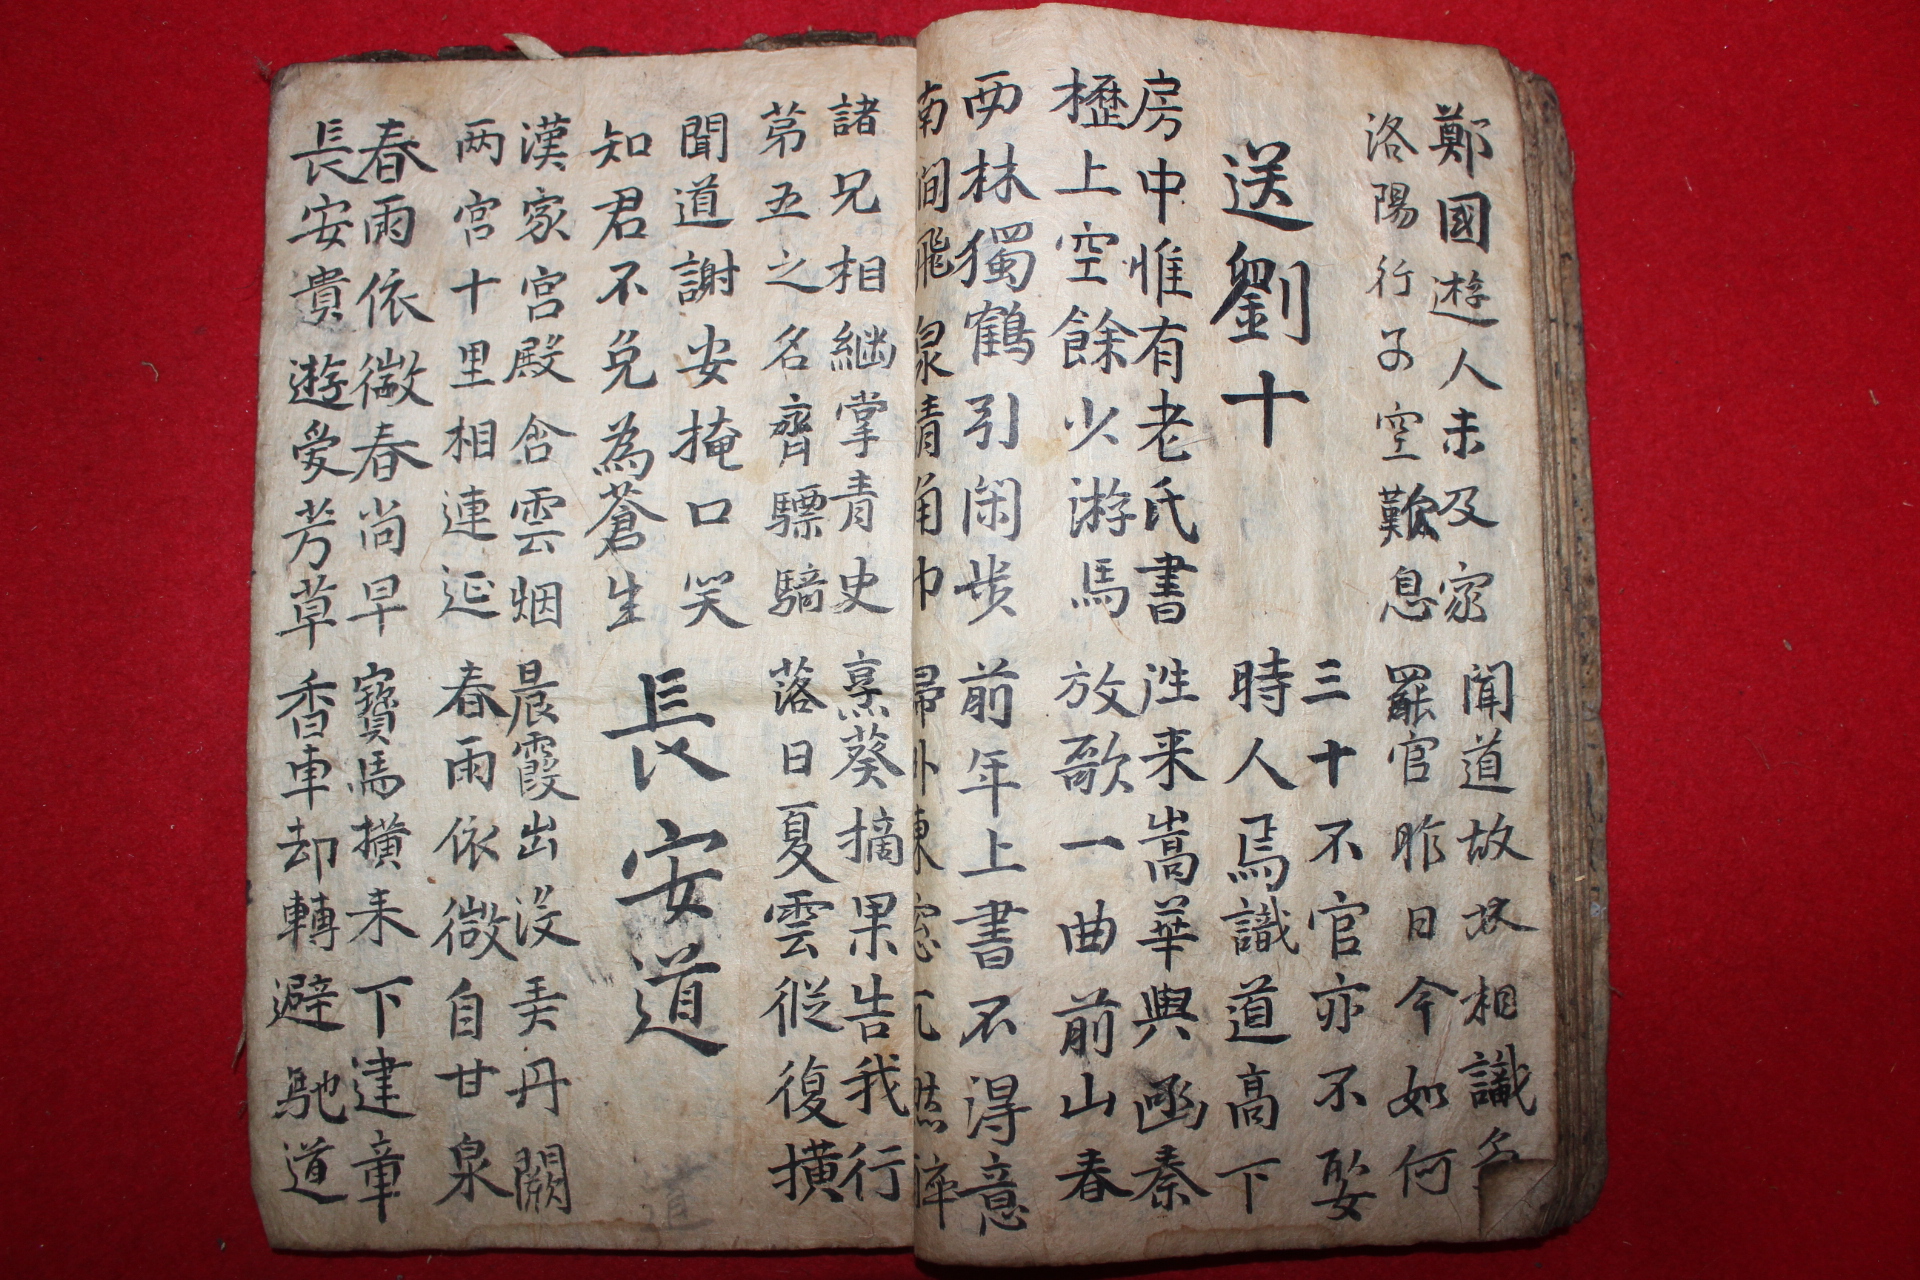 鄭國遊人未及家
洛陽行子空歎息
聞道故林相識多
罷官昨日今如何
送劉十
三十不官亦不娶
時人焉識道高下
房中惟有老氏書
櫪上空餘少游馬
往来嵩華與函秦
放歌一曲前山春
西林獨鶴引閑步
南澗飛泉清角巾
前年上書不得意
歸卧東窓兀然醉
諸兄相継掌青史
苐五之名齊驃騎
烹葵摘果告我行
落日夏雲縱復横
聞道謝安掩口笑
知君不免為蒼生
長安道
漢家宮殿含雲烟
两宮十里相連延
晨霞出没弄丹闕
春雨依微自甘泉
春雨依微春尚早
長安貴遊愛芳草
寶馬横来下建章
香車却轉避馳道
道